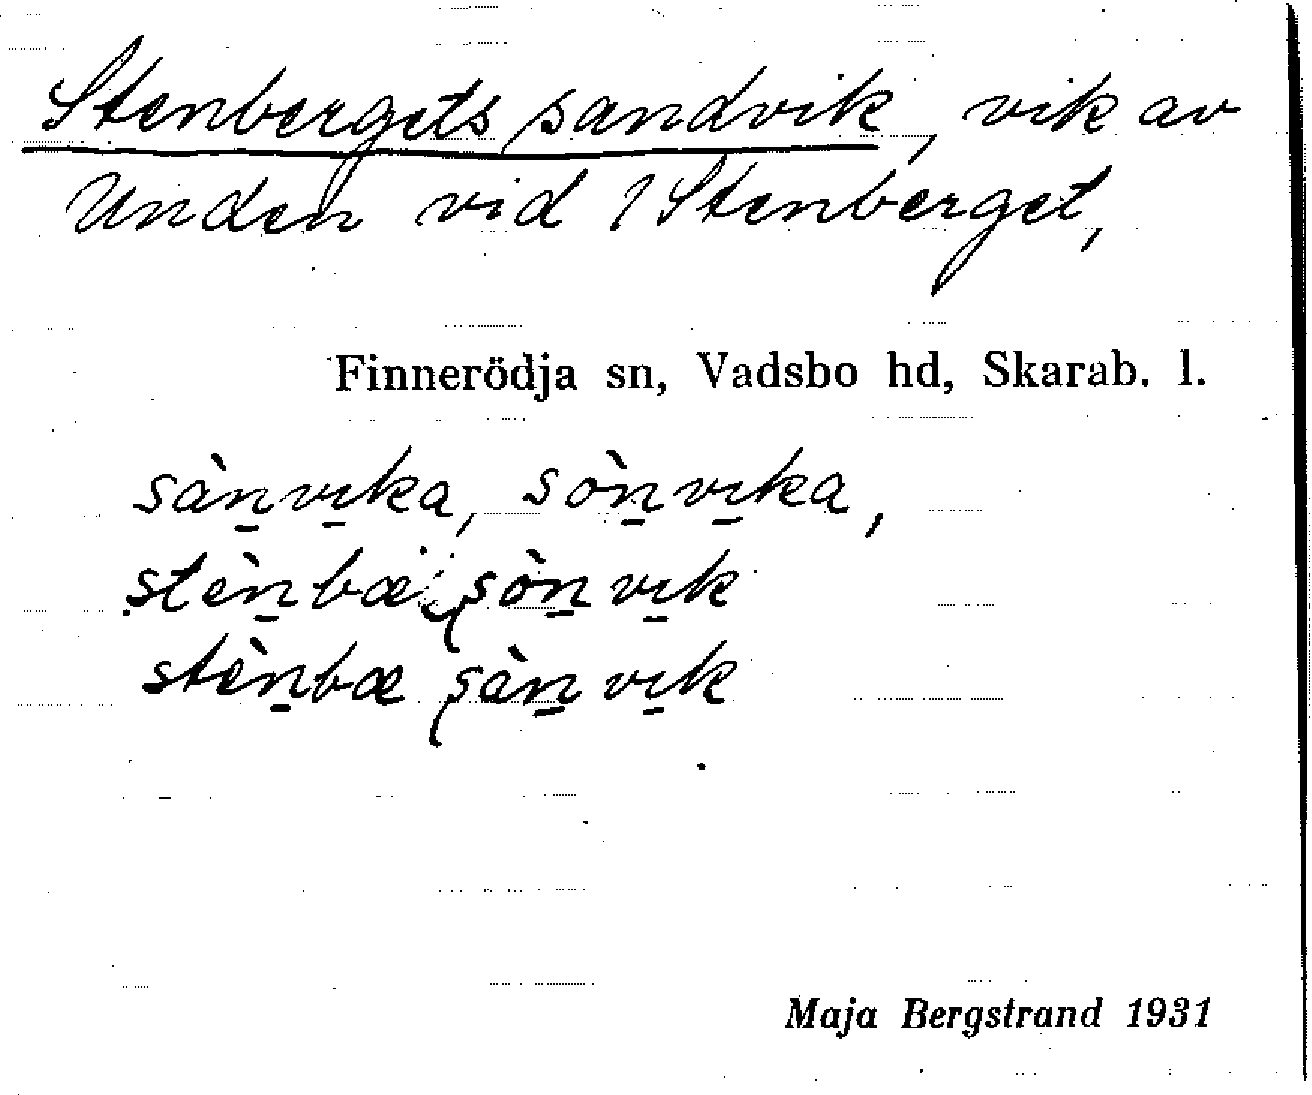 Stenbergets sandvik, vik av
Unden vid 1 Stenberget,
Finnerödja sn, Vadsbo hd, Skarab. l.
sàn̲vı̲ka, sòn̲vı̲ka,
stèn̲bæ sòn̲vı̲k
stèn̲bæ sàn̲vı̲k
Maja Bergstrand 1931